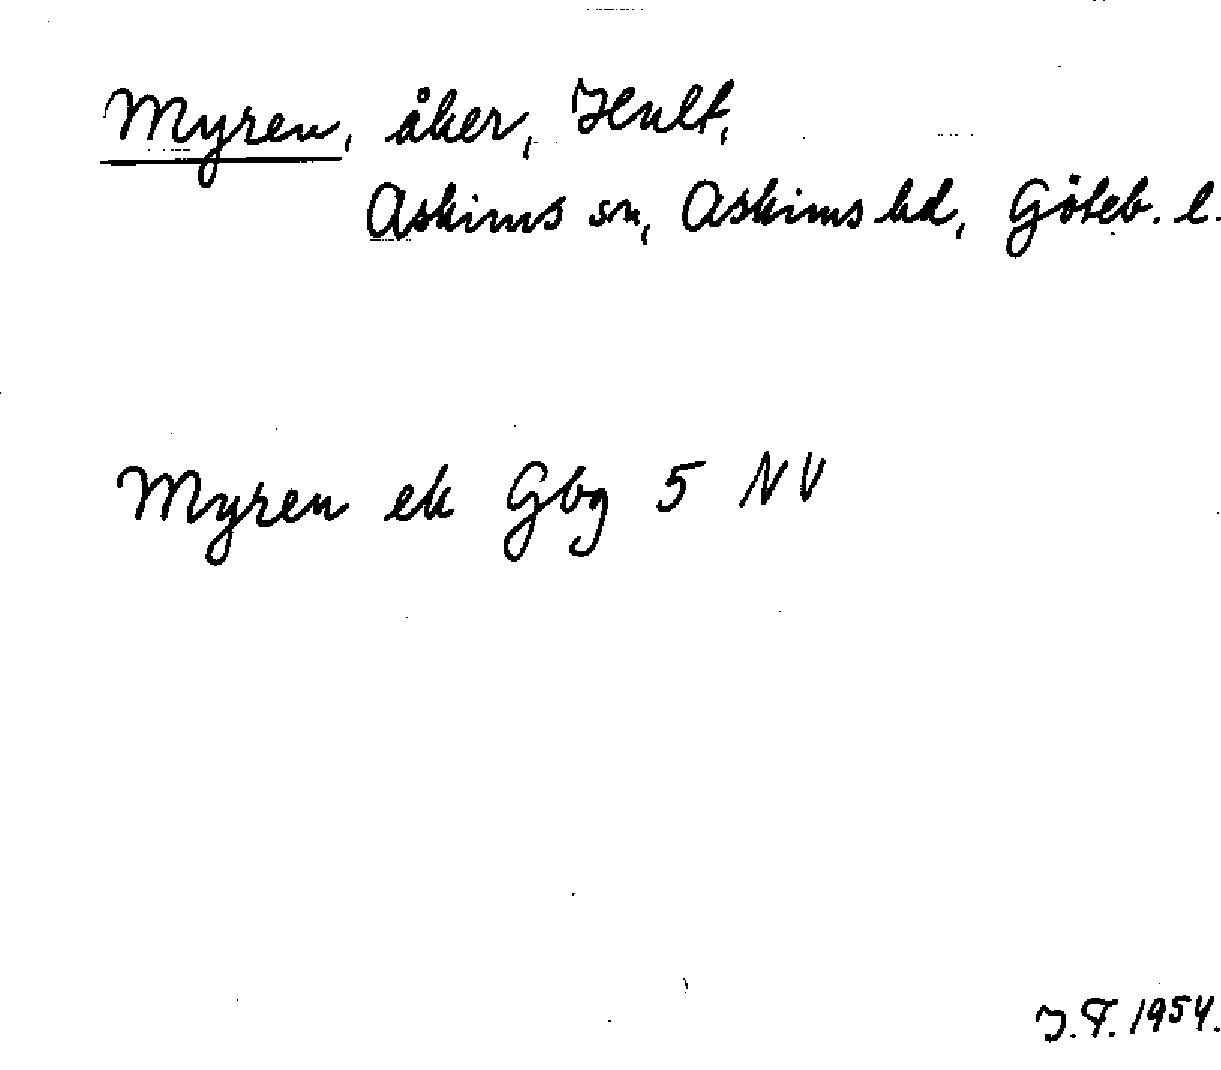 Myren, åker, Hult,
Askims sn, Askims hd, Göteb. l.
Myren ek Gbg 5 NV
J.F. 1954.